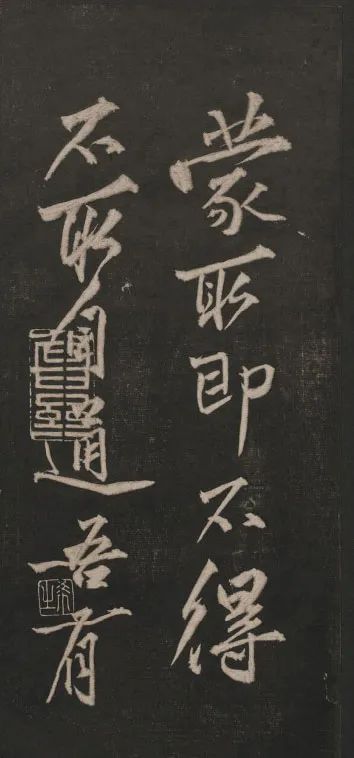 蒙取即不得
不取吾有